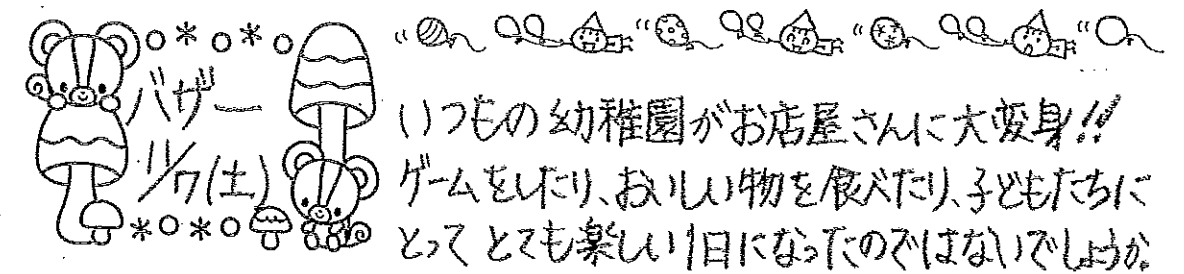 バザー
11/7(土)
いつもの幼稚園がお店屋さんに大変身!!
ゲームをしたり、おいしい物を食べたり、子どもたちに
とってとても楽しい1日になったのではないでしょうか。